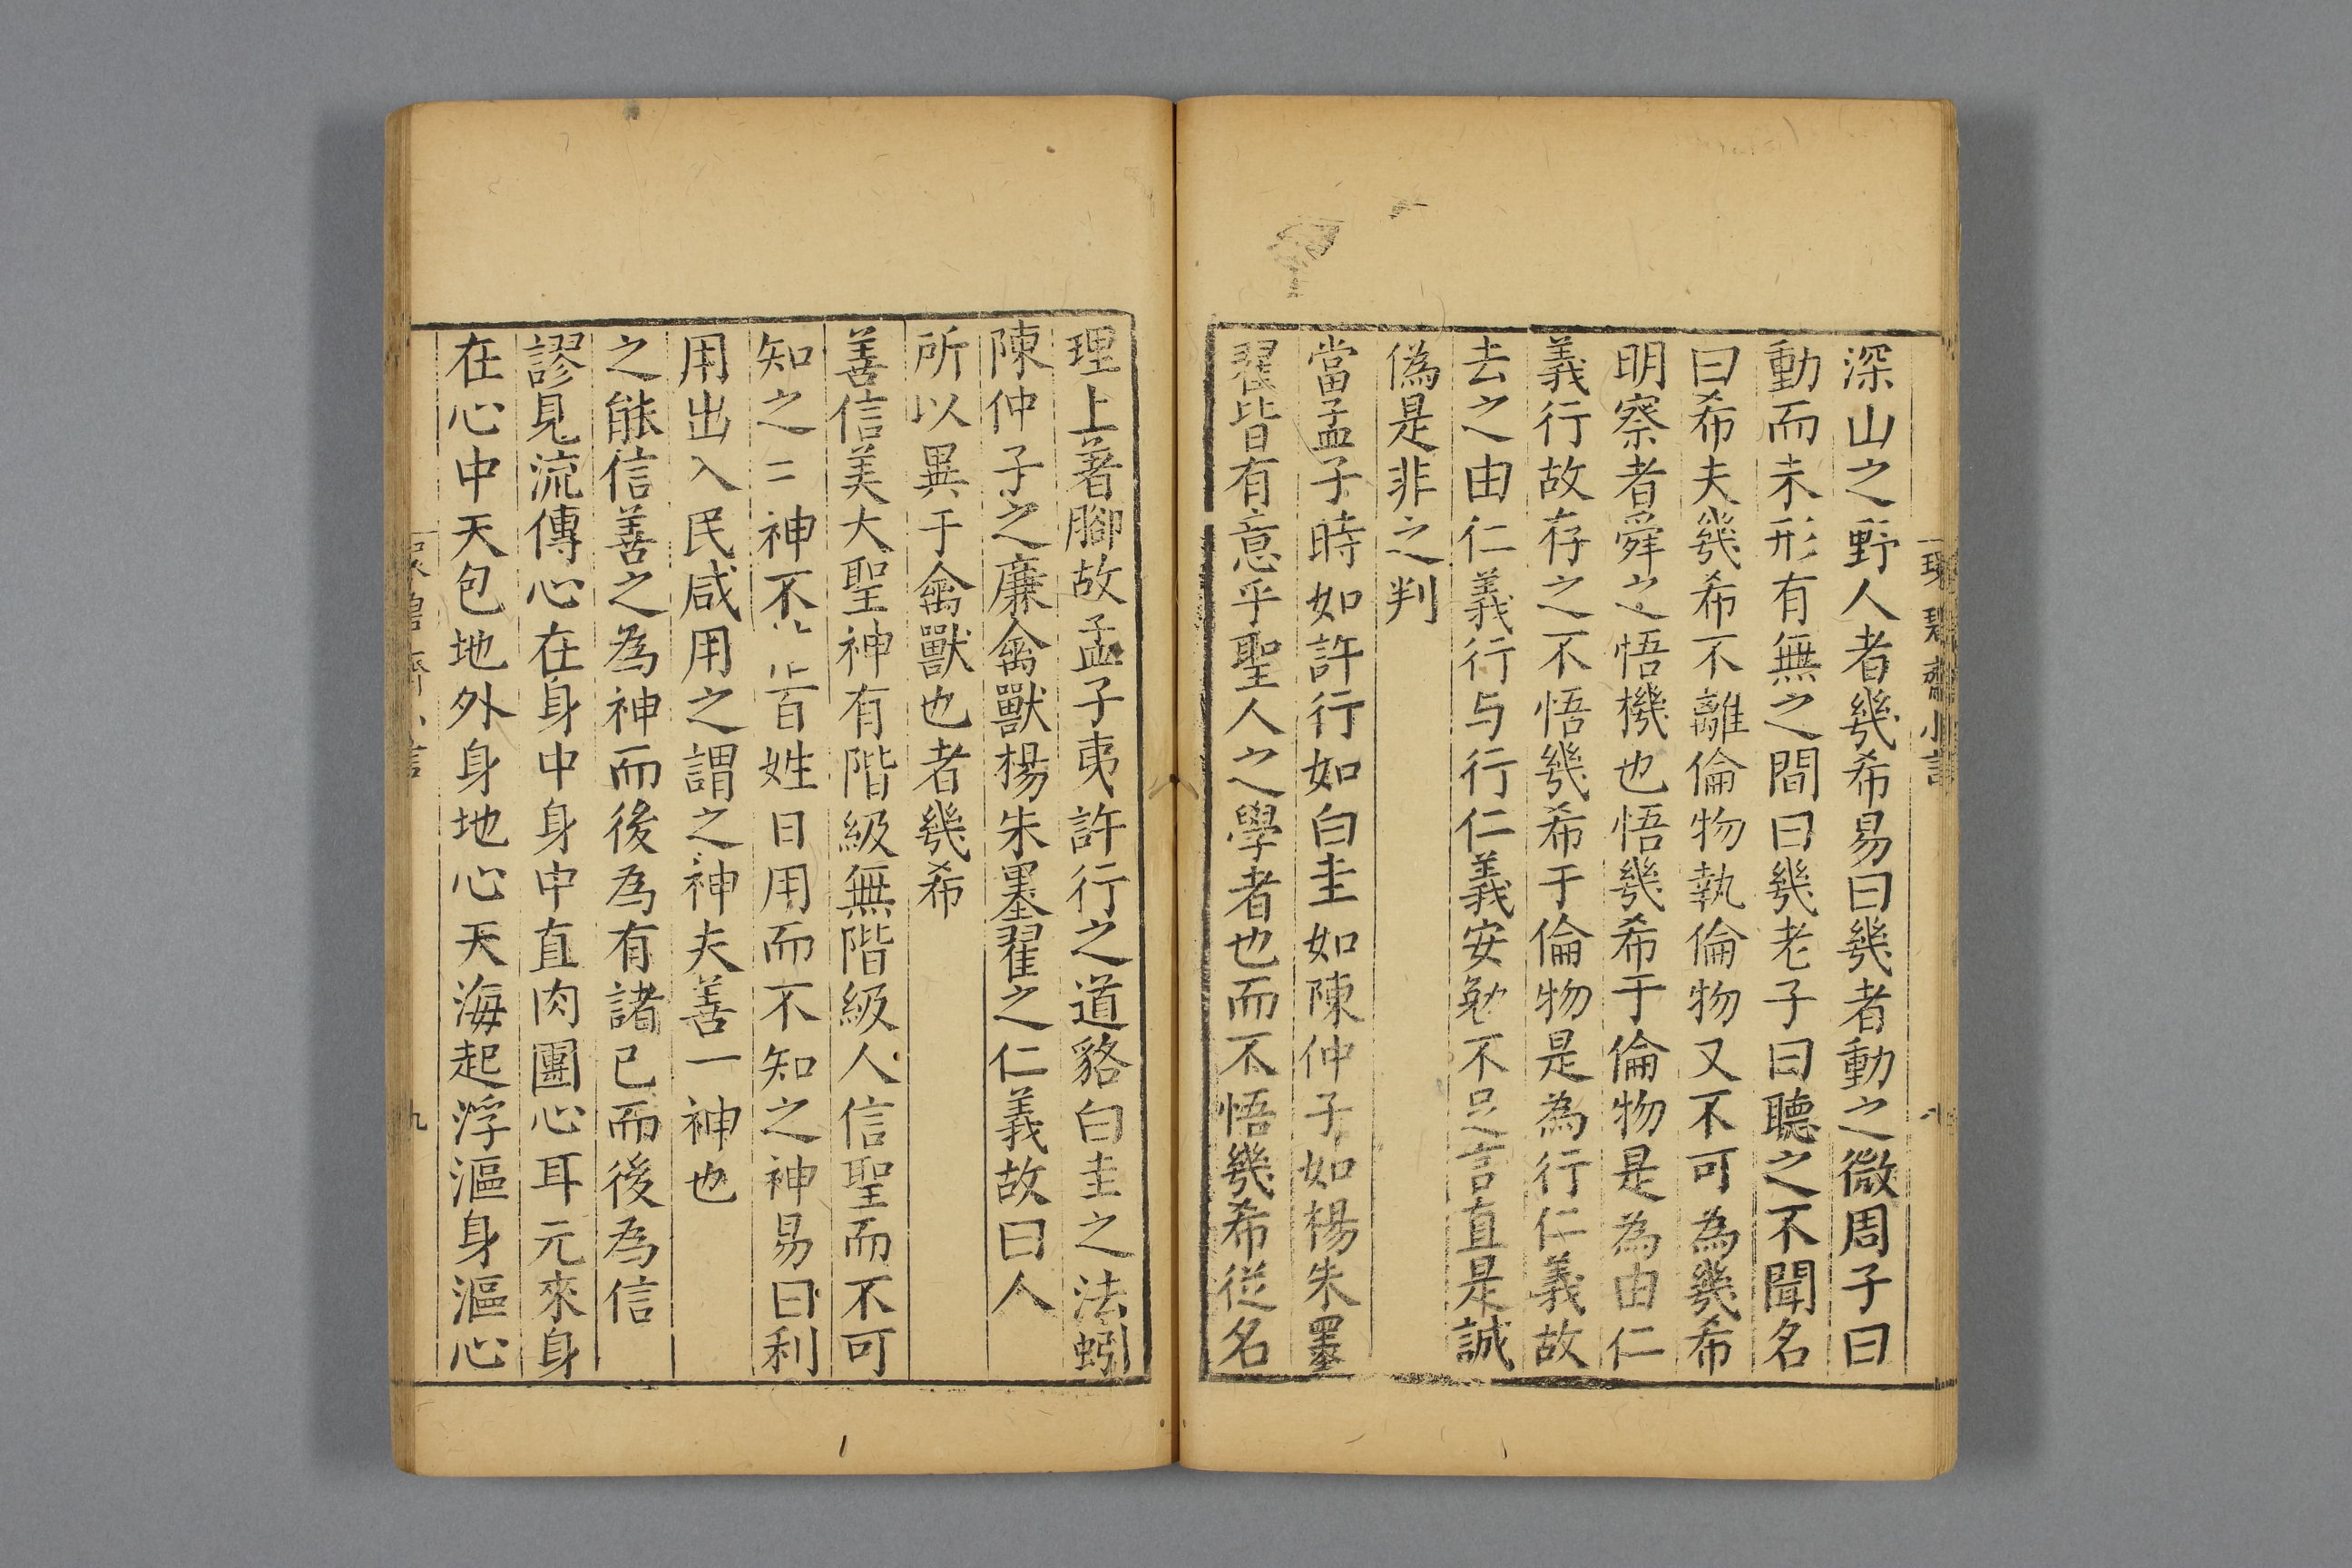 深山之野人者幾希易曰幾者動之微周子曰
動而未形有無之間曰幾老子曰聽之不聞名
曰希夫幾希不離倫物執倫物又不可為幾希
明察者舜之悟機也悟幾希于倫物是為由仁
義行故存之不悟幾希于倫物是為行仁義故
去之由仁義行与行仁義安勉不足言直是誠
偽是非之判
當孟子時如許行如白圭如陳仲子如楊朱墨
翟皆有意乎聖人之學者也而不悟幾希從名
理上著腳故孟子夷許行之道貉白圭之法蚓
陳仲子之廉禽獸楊朱墨翟之仁義故曰人
所以異于禽獸也者幾希
善信美大聖神有階級無階級人信聖而不可
知之二神不百姓日用而不知之神易曰利
用出入民咸用之謂之神夫善一神也
之能信善之為神而後為有諸已而後為信
謬見流傳心在身中身中直肉團心耳元來身
在心中天包地外身地心天海起浮漚身漚心